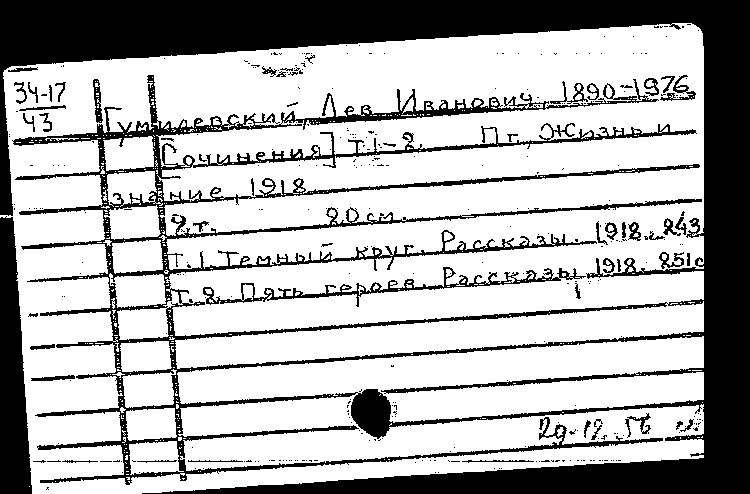 34-17
43
Гумилевский, Лев Иванович, 1890-1976
[Сочинения] т.1-2. Пг., Жизнь и
знание, 1918
2 т. 20 см.
Т.1. Темный круг. Рассказы. 1918. 243
Т.2. Пять героев. Рассказы, 1918. 251с
29-12.56